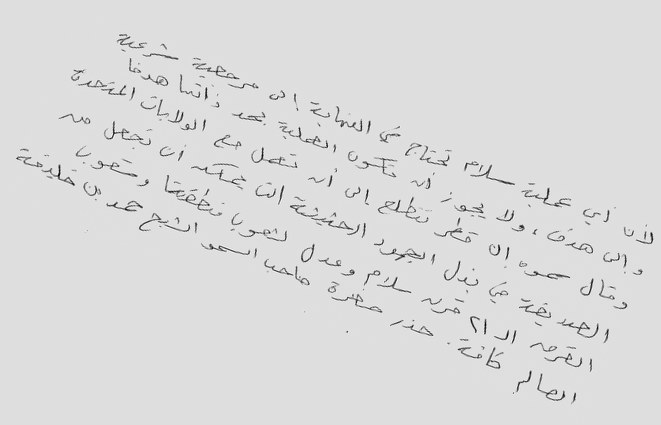 لأن أي عملية سلام تحتاج في النهاية إلى مرجعية شرعية
وإلى هدف، ولا يجوز أن تكون العملية بحد ذاتها هدفا
وقال سموه إن قطر تتطلع إلى أن تعمل مع الولايات المتحدة
الصديقة في بذل الجهود الحثيثة التي يمكن أن تجعل من
القرن الـ ٢١ قرن سلام وعدل لشعوب منطقتنا وشعوب
العالم كافة. حذر حضرة صاحب السمو الشيخ حمد بن خليفة